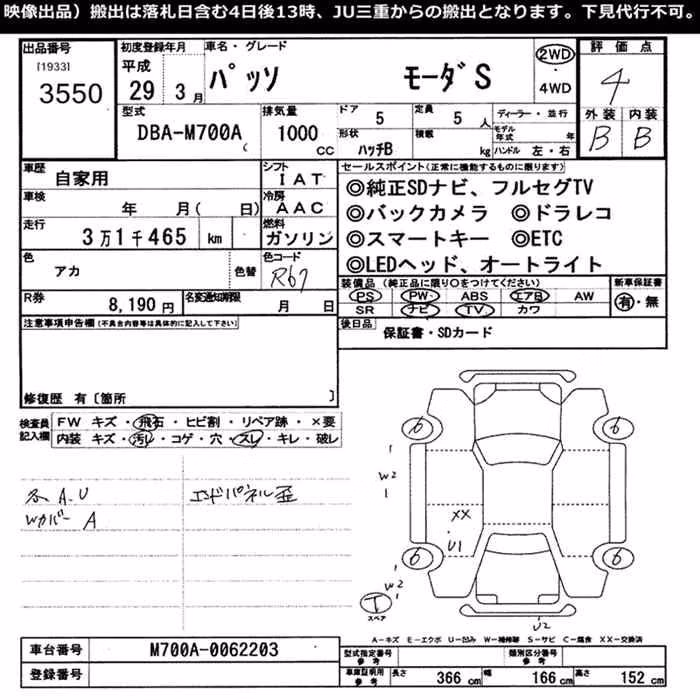 映像出品）搬出は落札日含む4日後13時、JU三重からの搬出となります。下見代行不可。
出品番号 初度登録年月 車名・グレード 評価点
[1933] 平成 2WD
3550 29 3月 パッソ モーダS ・ 4WD 4
型式 排気量 ドア 5 定員 5人 ディーラー・並行 外装 内装
DBA-M700A 1000cc 形状 ハッチB 積載 kg モデル年式 年 B B
ハンドル 左・右
車歴 自家用 シフト IAT セールスポイント(正常に機能するものに限ります)
車検 年 月( 日) 冷房 AAC
◎純正SDナビ、フルセグTV
◎バックカメラ ◎ドラレコ
走行 3万1千465 km 燃料 ガソリン
◎スマートキー ◎ETC
色 アカ 色替 色コード R67
◎LEDヘッド、オートライト
R券 8,190円 名変通知期限 月 日
装備品(純正品に限り○をつけてください) 新車保証書
PS PW ABS エアB AW 有・無
SR ナビ TV カワ
注意事項申告欄(不具合内容等は具体的に記入して下さい)
後日品 保証書・SDカード
修復歴 有〔箇所 〕
検査員記入欄 FW キズ・飛石・ヒビ割・リペア跡・×要
内装 キズ・汚レ・コゲ・穴・スレ・キレ・破レ
各A.U エンドパネル歪
Wカバー A
6 6
1
W2
1
XX
U1
6 6
1
W2
1
T
スペア
U2
A－キズ E－エクボ U－凹み W－補修跡 S－サビ C－腐食 XX－交換済
車台番号 M700A-0062203 型式指定番号 参考 類別区分番号 参考
登録番号 車庫証明用 参考 長さ 366cm 幅 166cm 高さ 152cm